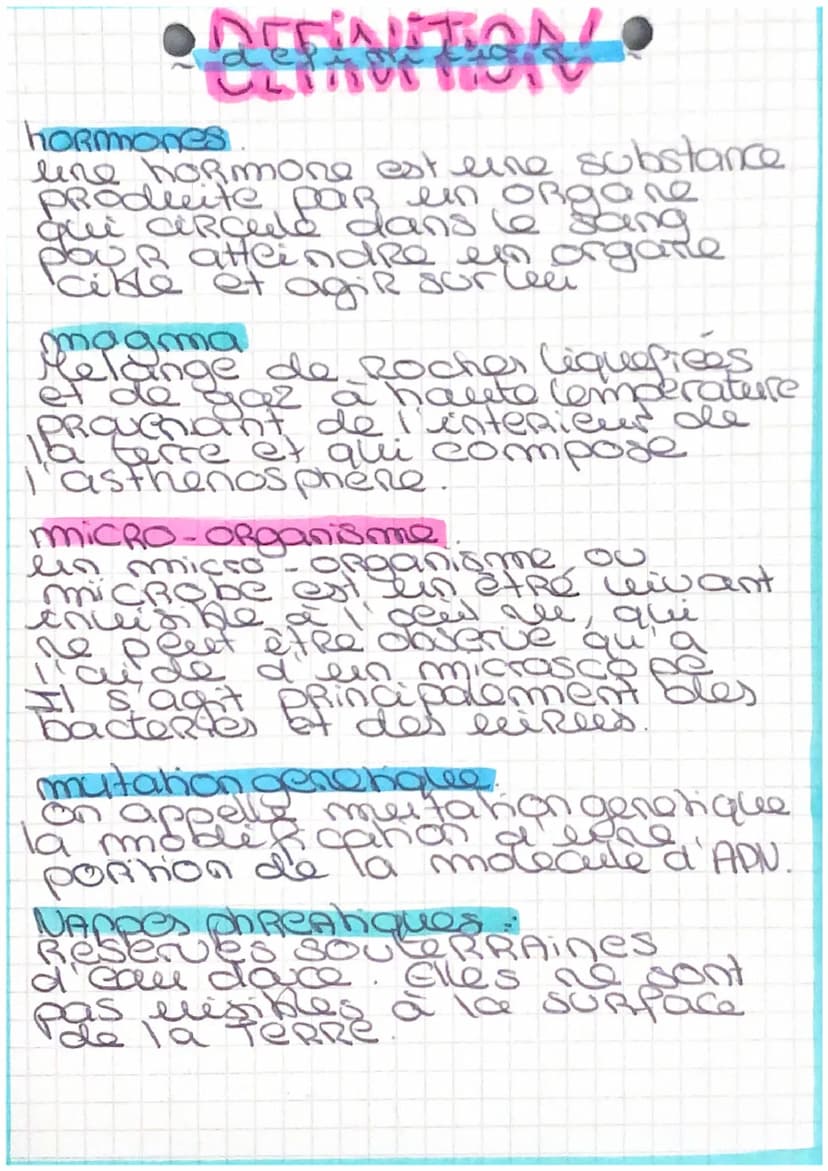 DEFINITION
definition
hormones.
une hormone est une substance
produite par un organe
qui circule dans le sang
pour atteindre un organe
cible et agir sur lui
magma
Melange de Roches liquefiées
et de gaz à haute temperature
provenant de l'interieur de
la terre et qui compose
l'asthenosphère.
micro-organisme.
un micro-organisme ou
microbe est un être vivant
invisible à l'oeil nu, qui
ne peut être observe qu'à
l'aide d'un microscope
Il s'agit principalement des
bacteries et des virus.
mutation genetique.
on appelle mutation genetique
la modification d'une
portion de la molecule d'ADN.
NAppes phreatiques :
Reserves souterraines
d'eau douce. Elles ne sont
pas visibles à la surface
de la Terre.